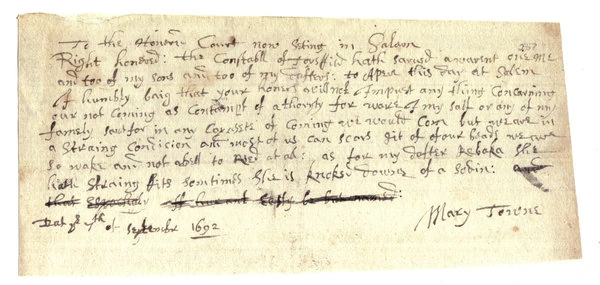 To the Honered Court now siting in Salam
Right honored: the Constabll of Topsffild hath sarved a warent one me
and too of my sons and too of my dafters: to Apere this day at Salem
I humbly baig that your honers will not Impust any thing Concarning
our not Coming as Contampt of athority for ware I my salf or any of my
famely sent for in any Capassete of Coming we would Com but we are in
a straing Condicion and most of us can scars git of of our beads we are
so wake and not abell to Ried at al: as for my dafter Rebaka she
hath straing fits somtimes she is knoked downe of a sodin:
Dat ye 7th of Septembr 1692
Mary Towne